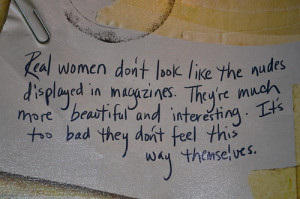 Real women don't look like the nudes
displayed in magazines. They're much
more beautiful and interesting. It's
too bad they don't feel this
way themselves.